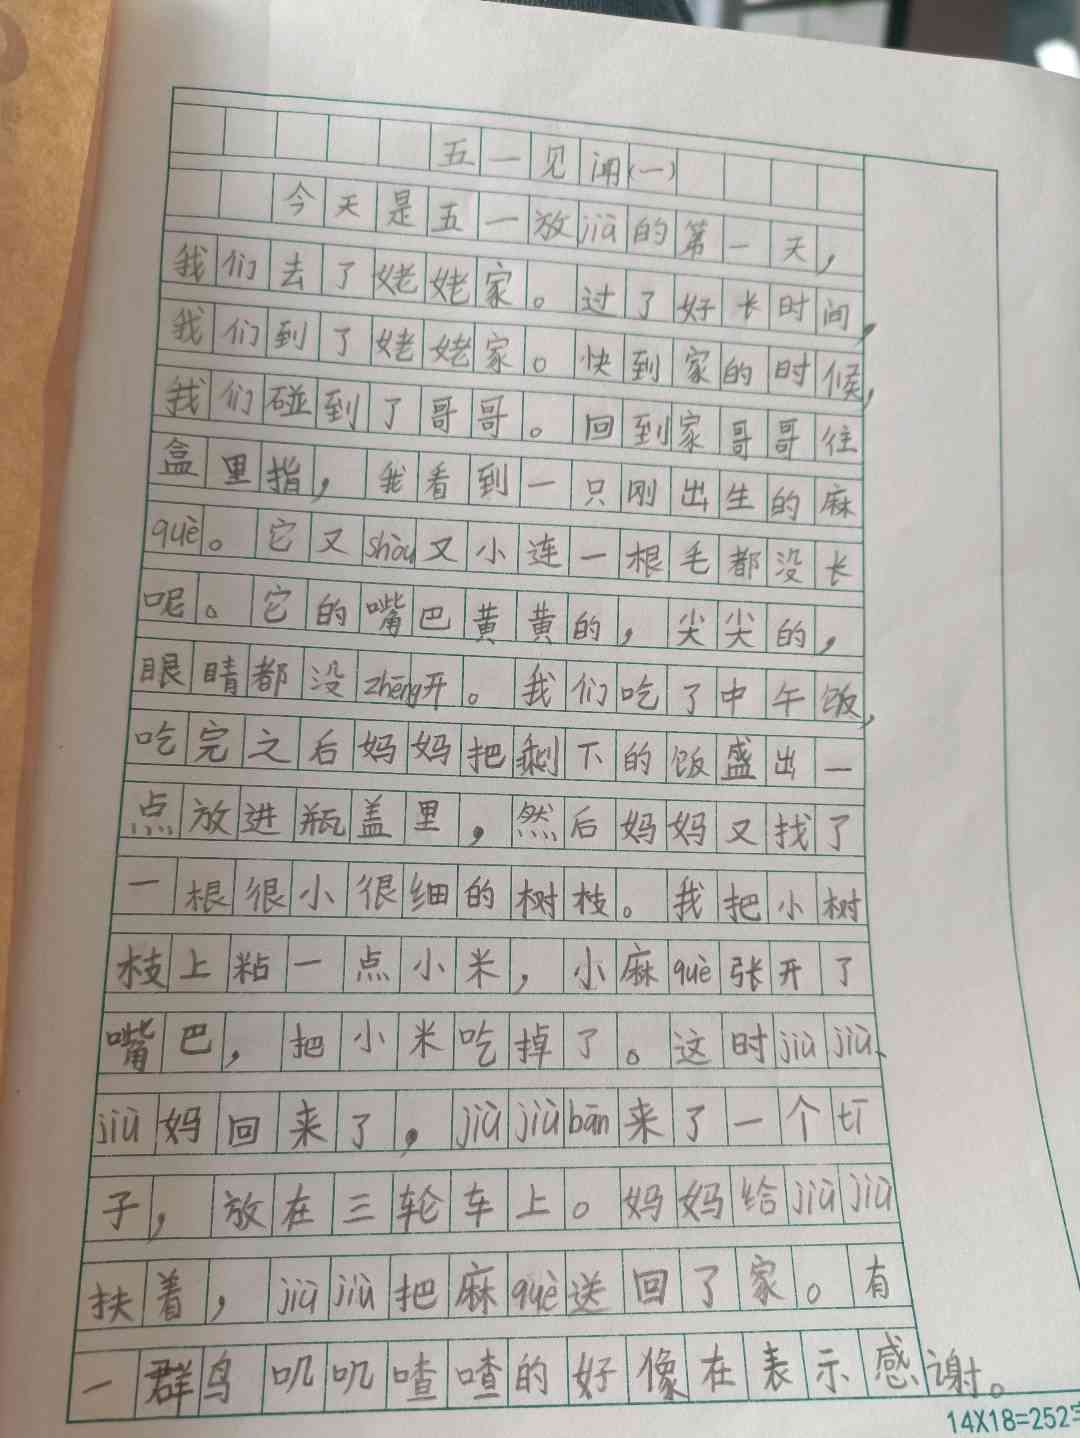 五一见闻(一)
今天是五一放jià的第一天，
我们去了姥姥家。过了好长时间，
我们到了姥姥家。快到家的时候，
我们碰到了哥哥。回到家哥哥往
盒里指，我看到一只刚出生的麻
què。它又shòu又小连一根毛都没长
呢。它的嘴巴黄黄的，尖尖的，
眼睛都没zhēng开。我们吃了中午饭，
吃完之后妈妈把剩下的饭盛出一
点放进瓶盖里，然后妈妈又找了
一根很小很细的树枝。我把小树
枝上粘一点小米，小麻què张开了
嘴巴，把小米吃掉了。这时jiù jiù、
jiù妈回来了，jiù jiù bān来了一个tī
子，放在三轮车上。妈妈给jiù jiù
扶着，jiù jiù把麻què送回了家。有
一群鸟叽叽喳喳的好像在表示感谢。
14X18=252字